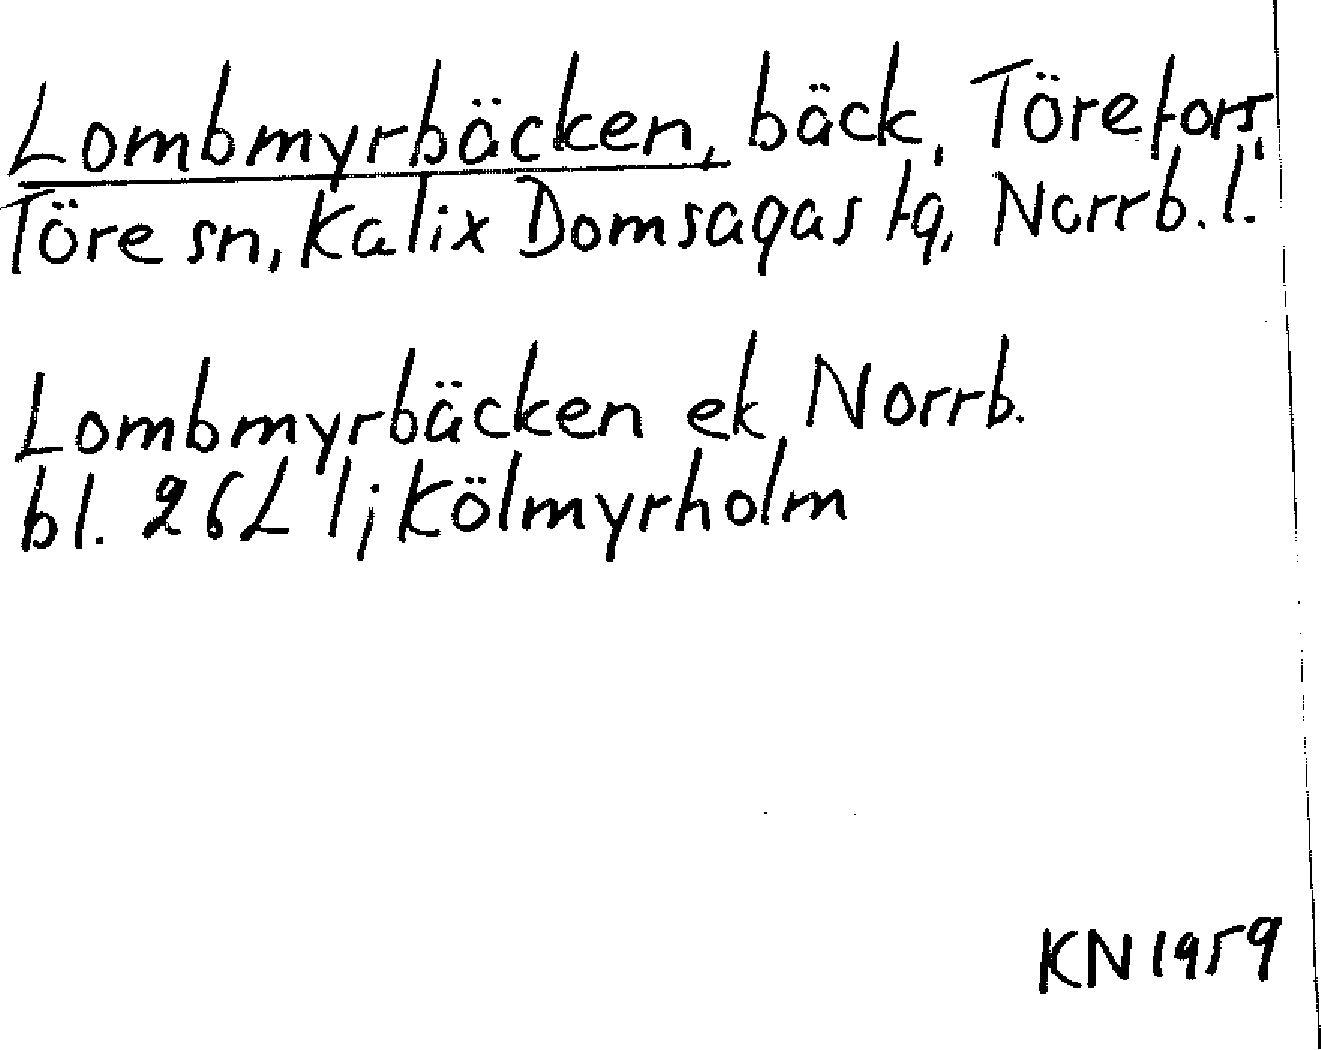 Lombmyrbäcken, bäck, Törefors,
Töre sn, Kalix Domsagas tg, Norrb. l.
Lombmyrbäcken ek. Norrb.
bl. 26L 1; Kölmyrholm
KN 1959